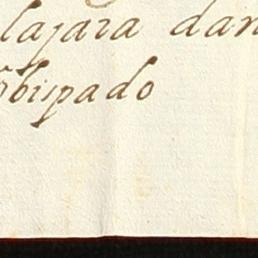 lajara dan
obispado